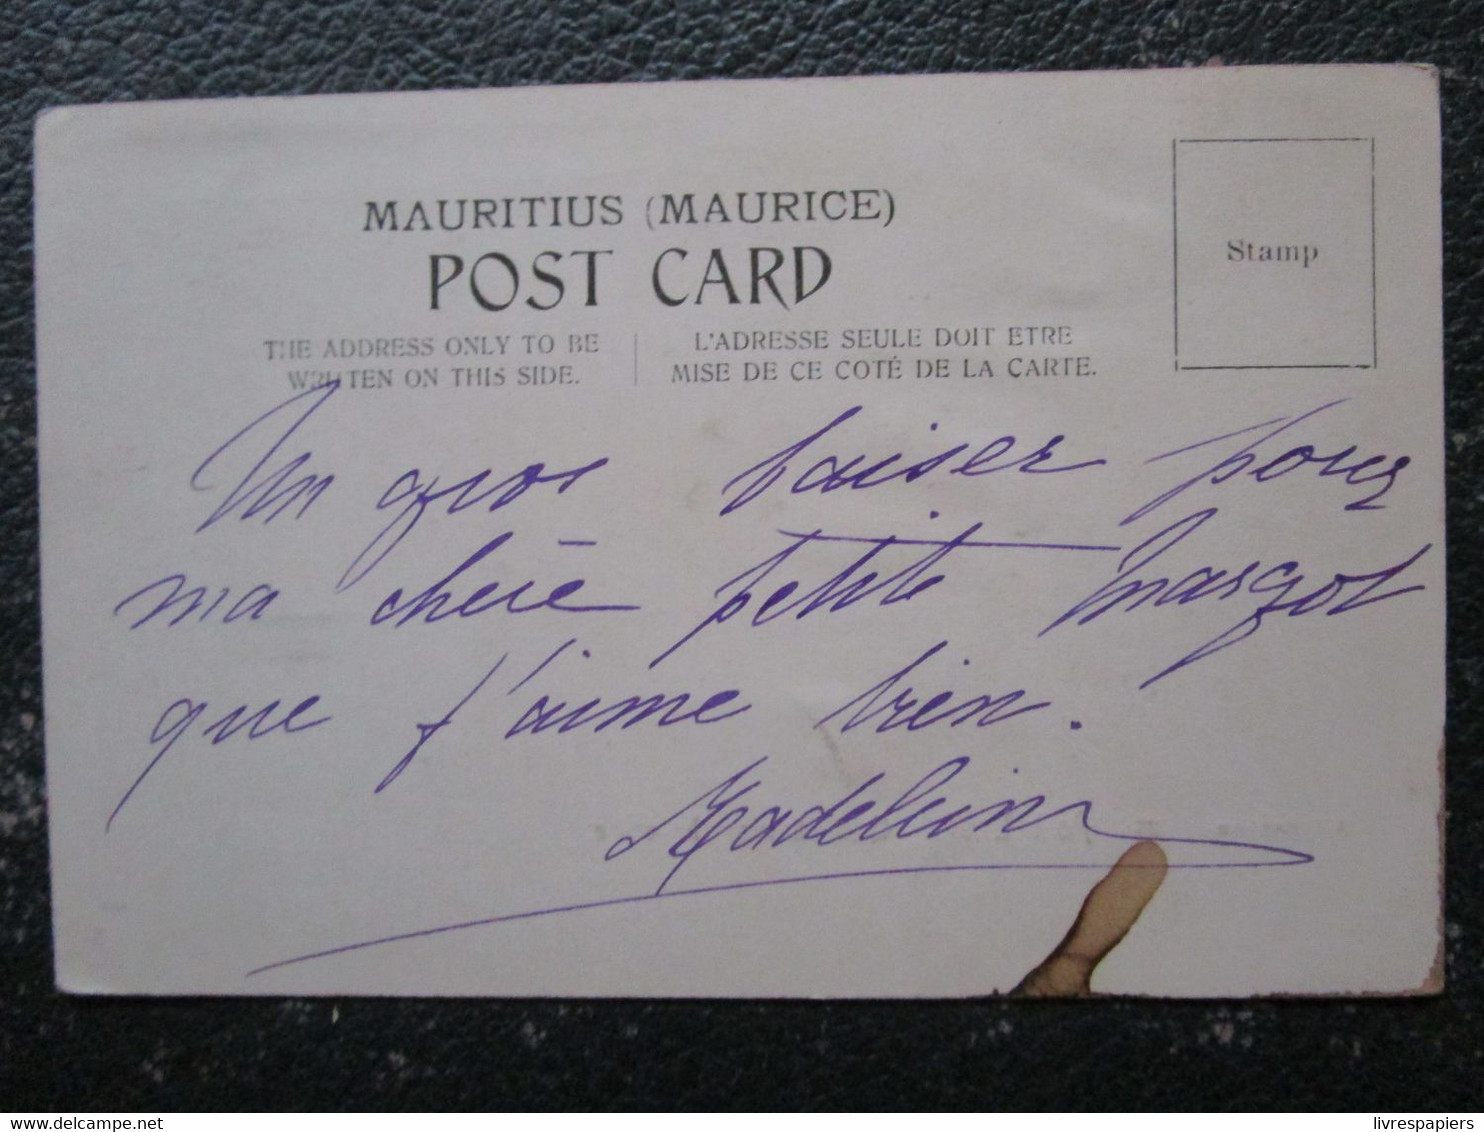 MAURITIUS (MAURICE)
POST CARD
Stamp
THE ADDRESS ONLY TO BE
WRITTEN ON THIS SIDE.
L'ADRESSE SEULE DOIT ETRE
MISE DE CE COTÉ DE LA CARTE.
Un gros baiser pour
ma chère petite Margot
que j'aime bien.
Madeleine
www.delcampe.net
livrespapiers